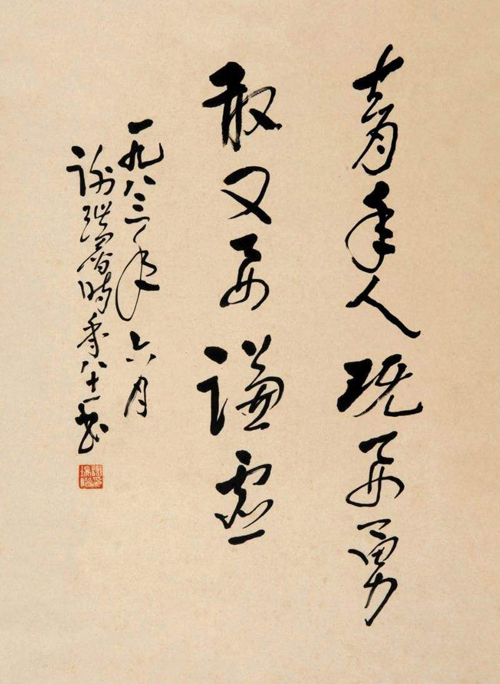 青年人既要勇
敢又要谦虚
一九八三年六月
谢瑞階时年八十一书